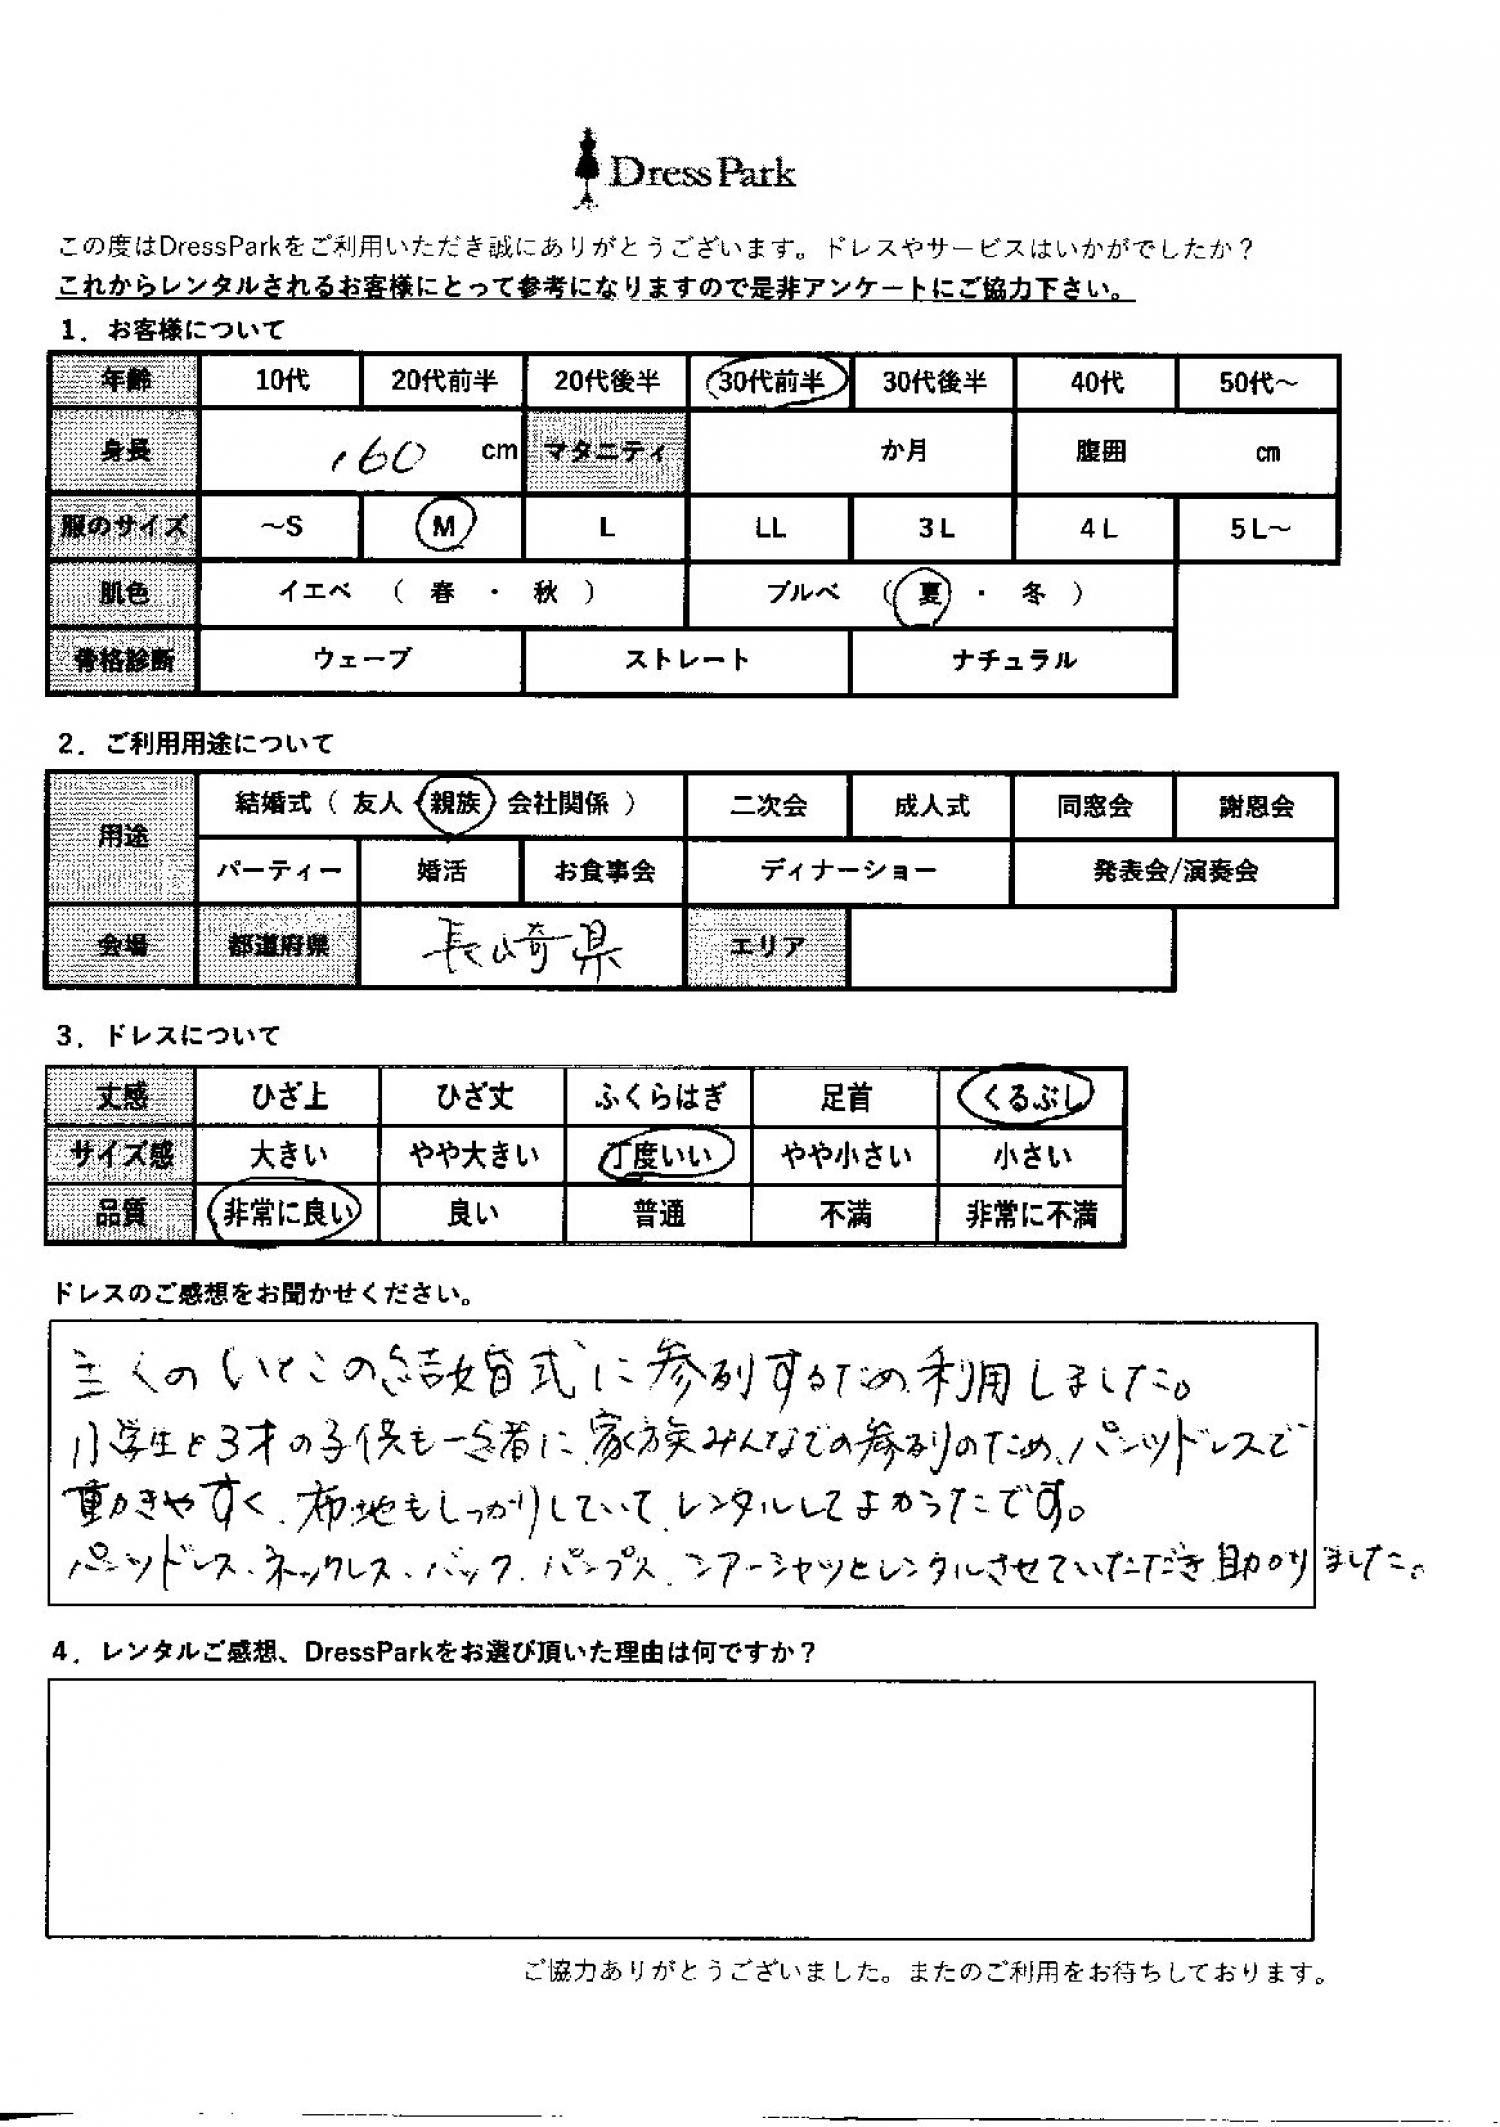 Dress Park
この度はDressParkをご利用いただき誠にありがとうございます。ドレスやサービスはいかがでしたか？
これからレンタルされるお客様にとって参考になりますので是非アンケートにご協力下さい。
1．お客様について
年齢 10代 20代前半 20代後半 30代前半 30代後半 40代 50代～
身長 160 cm マタニティ か月 腹囲 cm
服のサイズ ～S M L LL 3L 4L 5L～
肌色 イエベ （ 春 ・ 秋 ） ブルベ （ 夏 ・ 冬 ）
骨格診断 ウェーブ ストレート ナチュラル
2．ご利用用途について
用途 結婚式（ 友人・親族・会社関係 ） 二次会 成人式 同窓会 謝恩会
パーティー 婚活 お食事会 ディナーショー 発表会/演奏会
会場 都道府県 長崎県 エリア
3．ドレスについて
丈感 ひざ上 ひざ丈 ふくらはぎ 足首 くるぶし
サイズ感 大きい やや大きい 丁度いい やや小さい 小さい
品質 非常に良い 良い 普通 不満 非常に不満
ドレスのご感想をお聞かせください。
のいとこの結婚式に参列するため利用しました。
小学生と3才の子供も一緒に家族みんなでの参列のため、パンツドレスで
動きやすく、布地もしっかりしていて、レンタルしてよかったです。
パンツドレス、ネックレス、バック、パンプス、シアーシャツとレンタルさせていただき助かりました。
4．レンタルご感想、DressParkをお選び頂いた理由は何ですか？
ご協力ありがとうございました。またのご利用をお待ちしております。